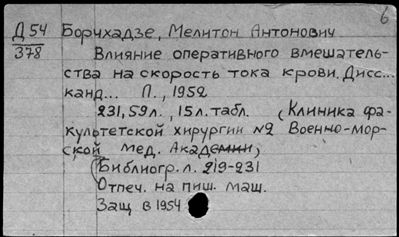 6
Д54 Борчхадзе, Мелитон Антонович
378
Влияние оперативного вмешатель-
ства на скорость тока крови. Дисс...
канд... Л., 1952
231, 59л., 15л. табл. (Клиника фа-
культетской хирургии №2 Военно-мор-
ской мед. Академии)
Библиогр. л. 219-231
Отпеч. на пиш. маш.
Защ в 1954